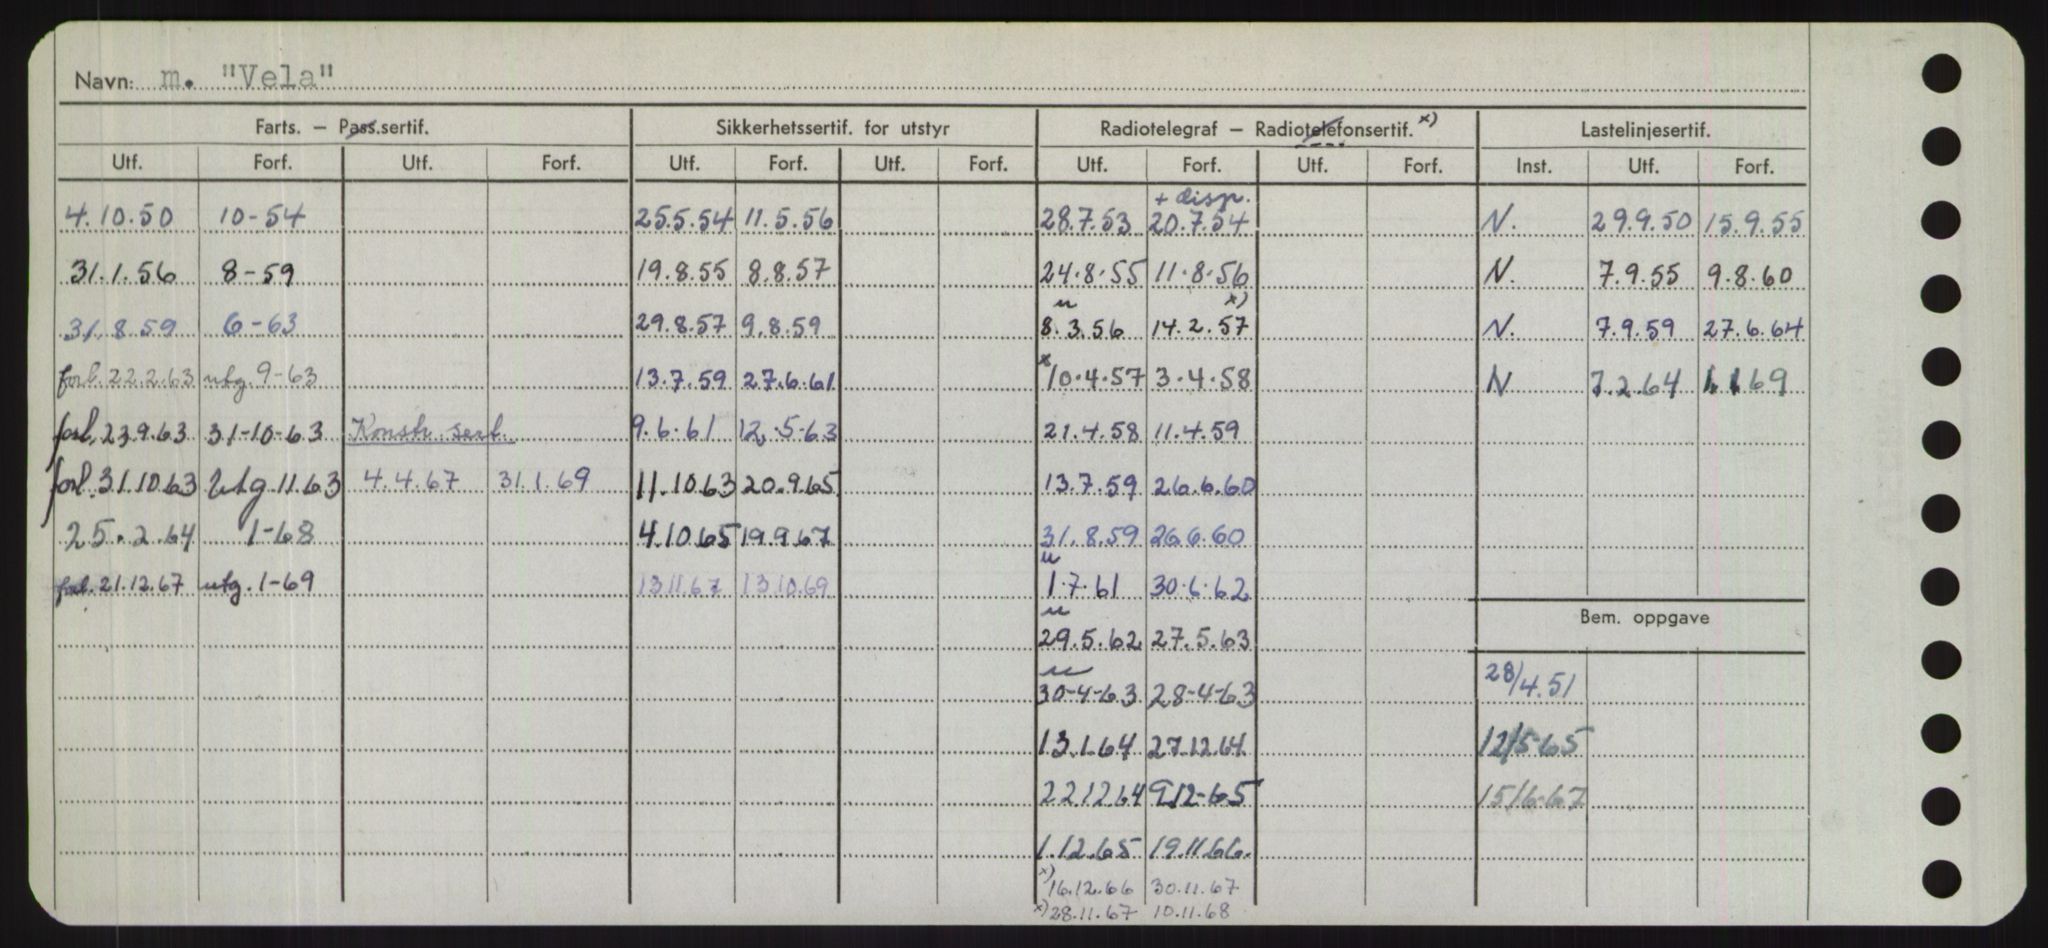 Navn: m. "Vela"
Farts. — Pass.sertif. Sikkerhetssertif. for utstyr Radiotelegraf — Radiotelefonsertif. x) Lastelinjesertif.
Utf. Forf. Utf. Forf. Utf. Forf. Utf. Forf. Utf. Forf. Utf. Forf. Inst. Utf. Forf.
+ disp.
4.10.50 10-54 25.5.54 11.5.56 28.7.53 20.7.54 N. 29.9.50 15.9.55
31.1.56 8-59 19.8.55 8.8.57 24.8.55 11.8.56 N. 7.9.55 9.8.60
u x)
31.8.59 6-63 29.8.57 9.8.59 8.3.56 14.2.57 N. 7.9.59 27.6.64
forl. 22.2.63 utg. 9-63 13.7.59 27.6.61 x 10.4.57 3.4.58 N 7.2.64 1.1.69
forl. 23.9.63 31-10-63 Konstr. sert. 9.6.61 12.5-63 21.4.58 11.4.59
forl. 31.10.63 Utg. 11.63 4.4.67 31.1.69 11.10.63 20.9.65 13.7.59 26.6.60
25.2.64 1-68 4.10.65 19.9.67 31.8.59 26.6.60
u
forl. 21.12.67 utg. 1-69 13.11.67 13.10.69 1.7.61 30.6.62
u
Bem. oppgave
29.5.62 27.5.63
u
30-4-63 28-4-63 28/4.51
13.1.64 27.12.64 12/5-65
22.12.64 9.12-65 15/6-67
1.12.65 19.11.66.
x) 16.12.66 30.11.67
x) 28.11.67 10.11.68